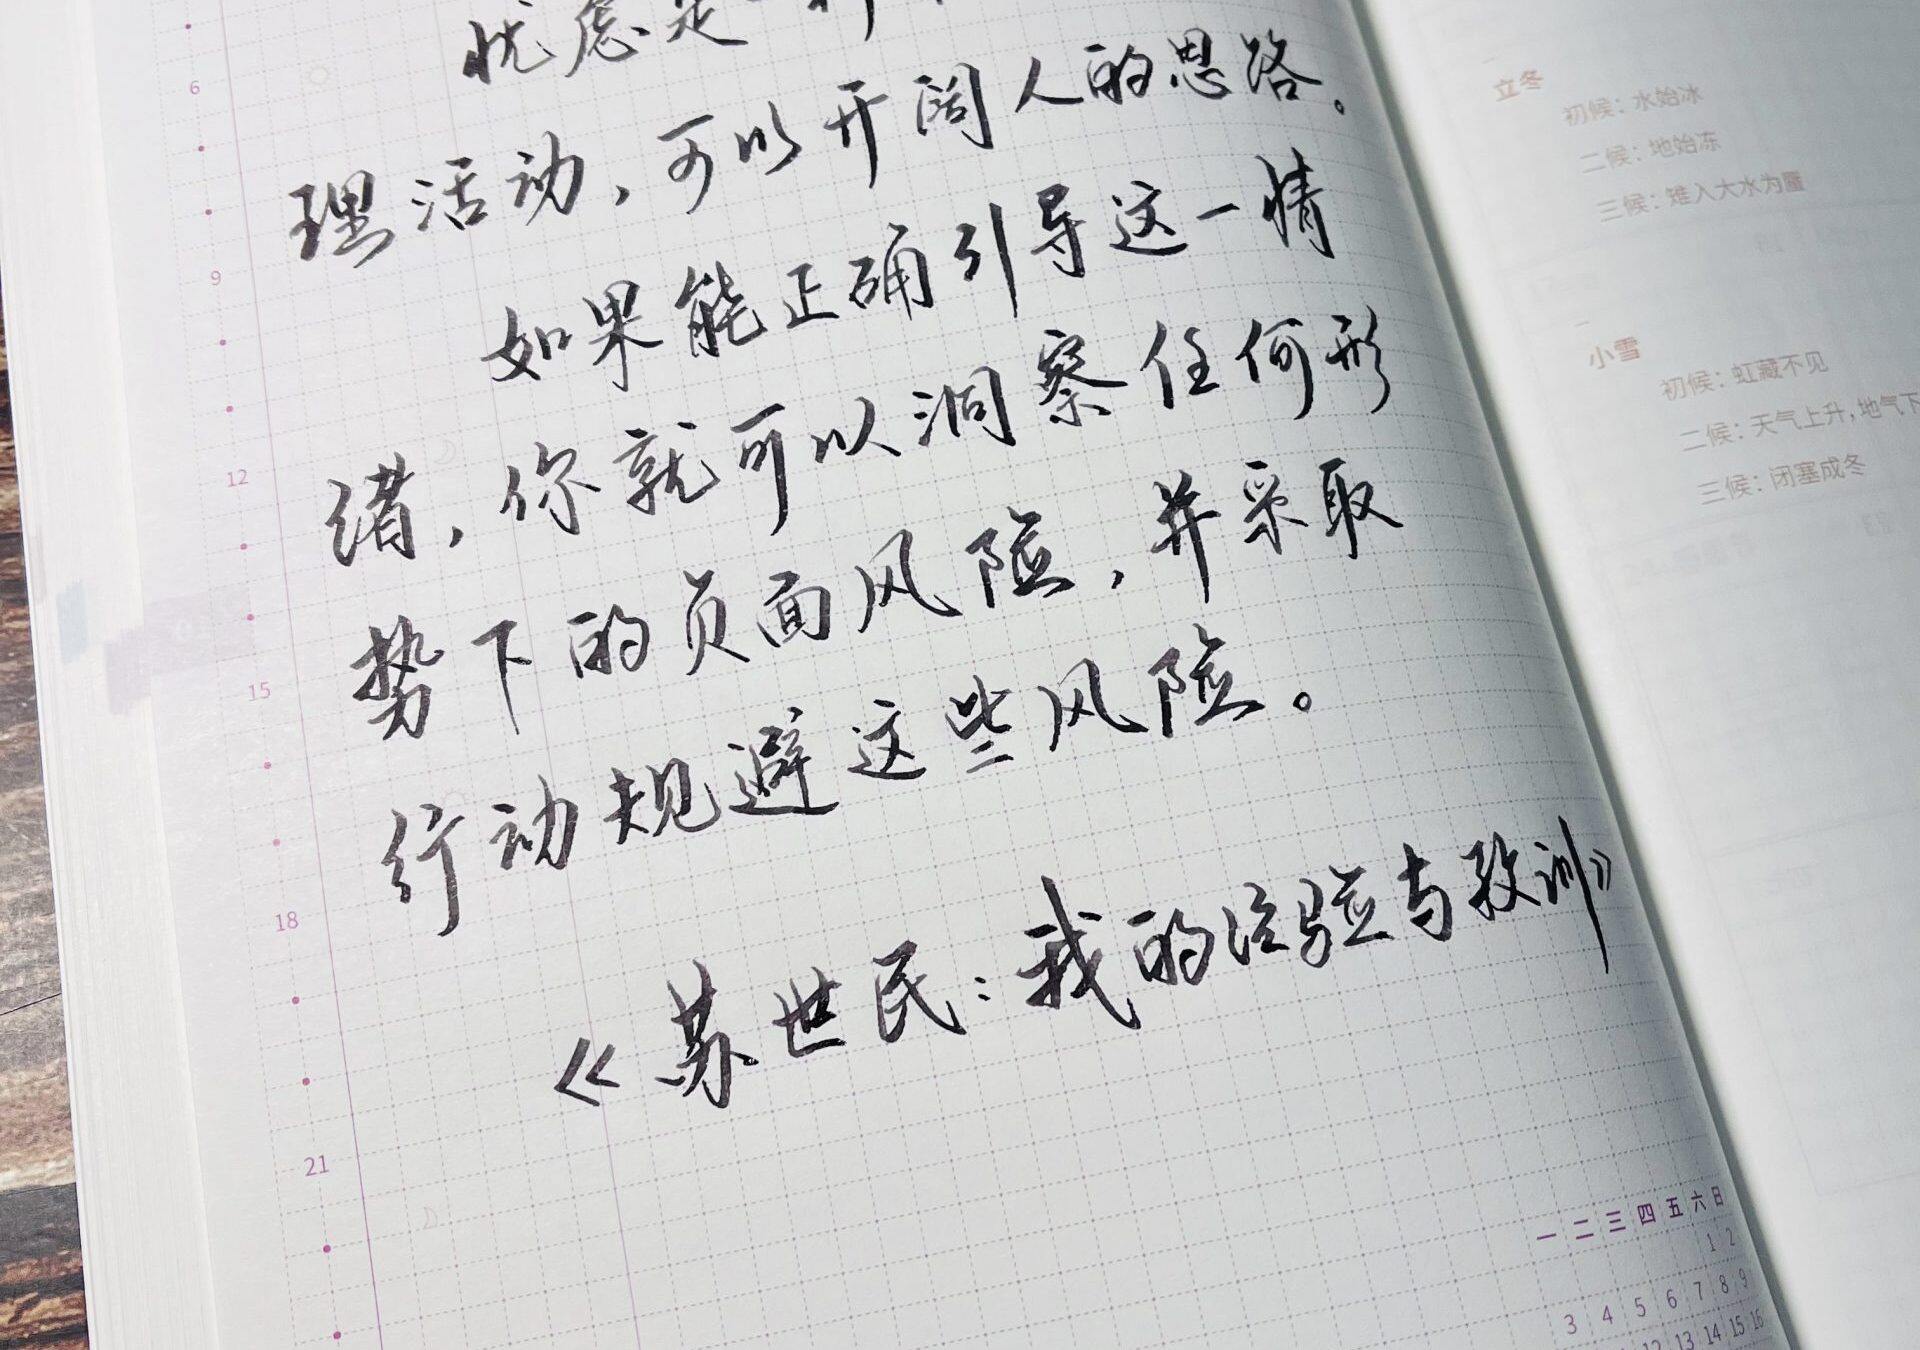 忧虑是一种
理活动，可以开阔人的思路。
如果能正确引导这一情
绪，你就可以洞察任何形
势下的负面风险，并采取
行动规避这些风险。
《苏世民：我的经验与教训》
6
9
12
15
18
21
立冬
初候：水始冰
二候：地始冻
三候：雉入大水为蜃
小雪
初候：虹藏不见
二候：天气上升，地气下
三候：闭塞成冬
一 二 三 四 五 六 日
1 2
3 4 5 6 7 8 9
12 13 14 15 16